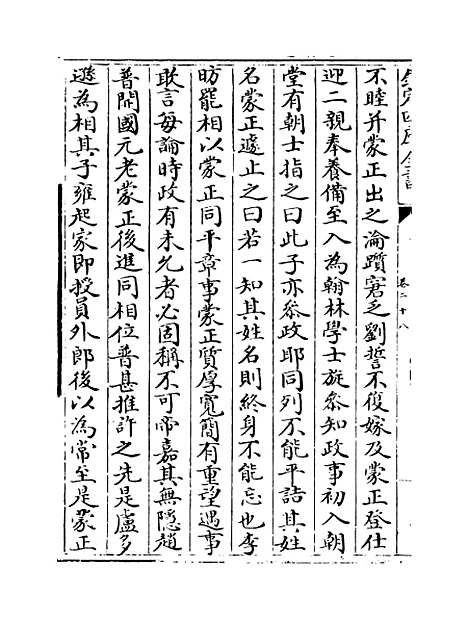 欽定四庫全書
卷二十八
不睦并蒙正出之淪躓窘乏劉誓不復嫁及蒙正登仕
迎二親奉養備至入為翰林學士旋叅知政事初入朝
堂有朝士指之曰此子亦叅政耶同列不能平詰其姓
名蒙正遽止之曰若一知其姓名則終身不能忘也李
昉罷相以蒙正同平章事蒙正質厚寛簡有重望遇事
敢言每論時政有未允者必固稱不可帝嘉其無隱趙
普開國元老蒙正後進同相位普甚推許之先是盧多
遜為相其子雍起家即授員外郎後以為常至是蒙正